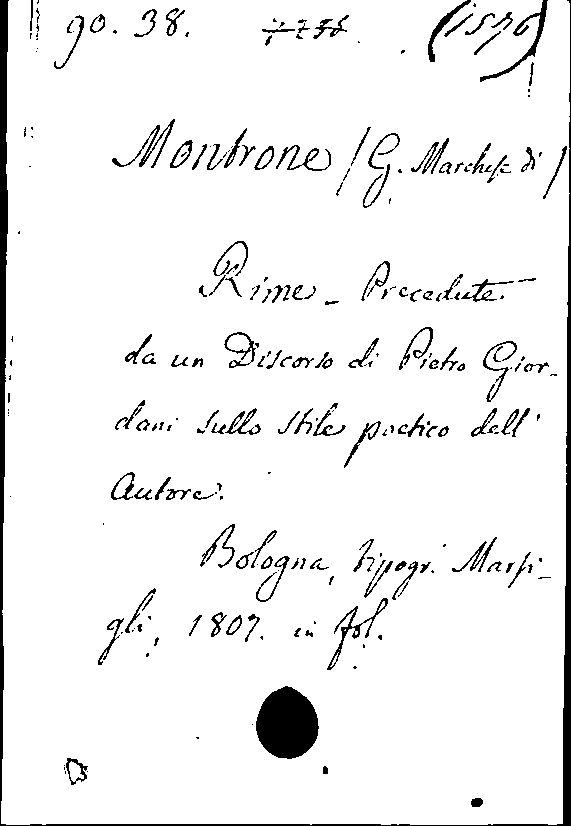 90. 38. 7758 (1576)
Montrone / G. Marchese di /
Rime - Precedute
da un Discorso di Pietro Gior-
dani sullo stile poetico dell'
Autore.
Bologna, tipogr. Marsi-
gli, 1807. in fol.